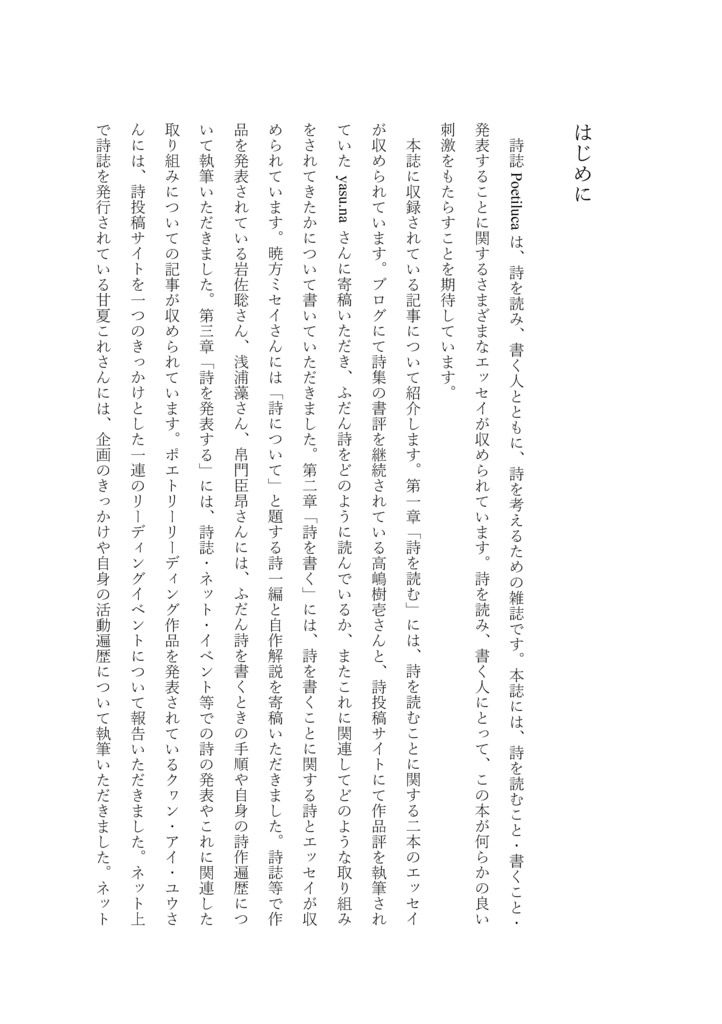 はじめに
詩誌 Poetiluca は、詩を読み、書く人とともに、詩を考えるための雑誌です。本誌には、詩を読むこと・書くこと・
発表することに関するさまざまなエッセイが収められています。詩を読み、書く人にとって、この本が何らかの良い
刺激をもたらすことを期待しています。
本誌に収録されている記事について紹介します。第一章「詩を読む」には、詩を読むことに関する二本のエッセイ
が収められています。ブログにて詩集の書評を継続されている高嶋樹壱さんと、詩投稿サイトにて作品評を執筆され
ていた yasu.na さんに寄稿いただき、ふだん詩をどのように読んでいるか、またこれに関連してどのような取り組み
をされてきたかについて書いていただきました。第二章「詩を書く」には、詩を書くことに関する詩とエッセイが収
められています。暁方ミセイさんには「詩について」と題する詩一編と自作解説を寄稿いただきました。詩誌等で作
品を発表されている岩佐聡さん、浅浦藻さん、帛門臣昂さんには、ふだん詩を書くときの手順や自身の詩作遍歴につ
いて執筆いただきました。第三章「詩を発表する」には、詩誌・ネット・イベント等での詩の発表やこれに関連した
取り組みについての記事が収められています。ポエトリーリーディング作品を発表されているクヮン・アイ・ユウさ
んには、詩投稿サイトを一つのきっかけとした一連のリーディングイベントについて報告いただきました。ネット上
で詩誌を発行されている甘夏これさんには、企画のきっかけや自身の活動遍歴について執筆いただきました。ネット